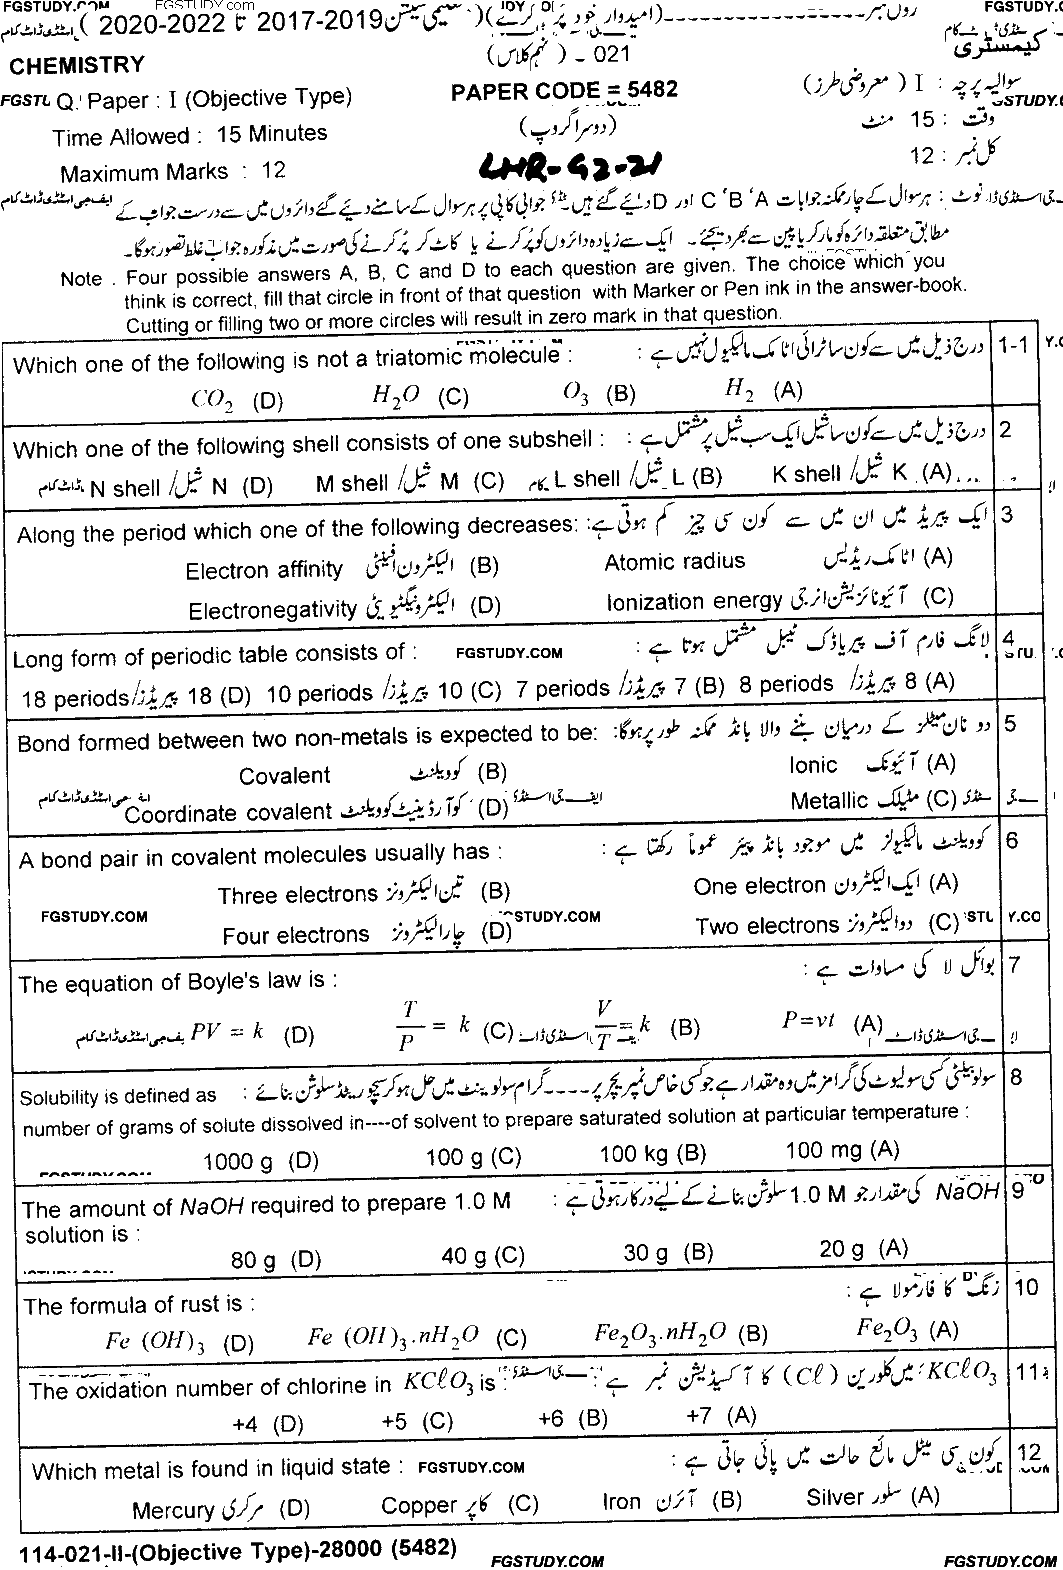 FGSTUDY.COM FGSTUDY.com FGSTUDY.C
رول نمبر ---------------- (امیدوار خود پُر کرے) (تعلیمی سیشن 2017-2019 تا 2020-2022)
کیمسٹری 021 - (نہم کلاس) CHEMISTRY
سوالیہ پرچہ : I (معروضی طرز) PAPER CODE = 5482 Q. Paper : I (Objective Type)
وقت : 15 منٹ (دوسرا گروپ) Time Allowed : 15 Minutes
کل نمبر : 12 LHR-G2-21 Maximum Marks : 12
نوٹ : ہر سوال کے چار ممکنہ جوابات A 'B 'C اور D دیئے گئے ہیں۔ جوابی کاپی پر ہر سوال کے سامنے دیئے گئے دائروں میں سے درست جواب کے
مطابق متعلقہ دائرہ کو مارکر یا پین سے بھر دیجئے۔ ایک سے زیادہ دائروں کو پُر کرنے یا کاٹ کر پُر کرنے کی صورت میں مذکورہ جواب غلط تصور ہوگا۔
Note . Four possible answers A, B, C and D to each question are given. The choice which you
think is correct, fill that circle in front of that question with Marker or Pen ink in the answer-book.
Cutting or filling two or more circles will result in zero mark in that question.
Which one of the following is not a triatomic molecule : درج ذیل میں سے کون سا ٹرائی اٹامک مالیکیول نہیں ہے : 1-1
CO₂ (D) H₂O (C) O₃ (B) H₂ (A)
Which one of the following shell consists of one subshell : درج ذیل میں سے کون سا شیل ایک سب شیل پر مشتمل ہے : 2
N shell / شیل N (D) M shell / شیل M (C) L shell / شیل L (B) K shell / شیل K (A)
Along the period which one of the following decreases: ایک پیریڈ میں ان میں سے کون سی چیز کم ہوتی ہے: 3
Electron affinity الیکٹرون افینٹی (B) Atomic radius اٹامک ریڈیس (A)
Electronegativity الیکٹرونیگٹیویٹی (D) Ionization energy آئیونائزیشن انرجی (C)
Long form of periodic table consists of : FGSTUDY.COM لانگ فارم آف پیریاڈک ٹیبل مشتمل ہوتا ہے : 4
18 periods / پیریڈز 18 (D) 10 periods / پیریڈز 10 (C) 7 periods / پیریڈز 7 (B) 8 periods / پیریڈز 8 (A)
Bond formed between two non-metals is expected to be: دو نان میٹلز کے درمیان بننے والا بانڈ ممکنہ طور پر ہوگا: 5
Covalent کوویلنٹ (B) Ionic آئیونک (A)
Coordinate covalent کوآرڈینیٹ کوویلنٹ (D) Metallic مٹیلک (C)
A bond pair in covalent molecules usually has : کوویلنٹ مالیکیولز میں موجود بانڈ پیئر عموماً رکھتا ہے : 6
Three electrons تین الیکٹرونز (B) One electron ایک الیکٹرون (A)
FGSTUDY.COM
Four electrons چار الیکٹرونز (D) Two electrons دو الیکٹرونز (C)
The equation of Boyle's law is : بوائل لا کی مساوات ہے : 7
PV = k (D) T/P = k (C) V/T = k (B) P=vt (A)
Solubility is defined as سولوبیلٹی کسی سولیوٹ کی گرامز میں وہ مقدار ہے جو کسی خاص ٹمپریچر پر ---- گرام سولوینٹ میں حل ہو کر سیچوریٹڈ سلوشن بنائے : 8
number of grams of solute dissolved in----of solvent to prepare saturated solution at particular temperature :
1000 g (D) 100 g (C) 100 kg (B) 100 mg (A)
The amount of NaOH required to prepare 1.0 M NaOH کی مقدار جو 1.0 M سلوشن بنانے کے لیے درکار ہوتی ہے : 9
solution is :
80 g (D) 40 g (C) 30 g (B) 20 g (A)
The formula of rust is : زنگ کا فارمولا ہے : 10
Fe (OH)₃ (D) Fe (OH)₃.nH₂O (C) Fe₂O₃.nH₂O (B) Fe₂O₃ (A)
The oxidation number of chlorine in KCℓO₃ is : KCℓO₃ میں کلورین (Cℓ) کا آکسیڈیشن نمبر ہے : 11
+4 (D) +5 (C) +6 (B) +7 (A)
Which metal is found in liquid state : FGSTUDY.COM کون سی میٹل مائع حالت میں پائی جاتی ہے : 12
Mercury مرکری (D) Copper کاپر (C) Iron آئرن (B) Silver سلور (A)
114-021-II-(Objective Type)-28000 (5482)
FGSTUDY.COM FGSTUDY.COM